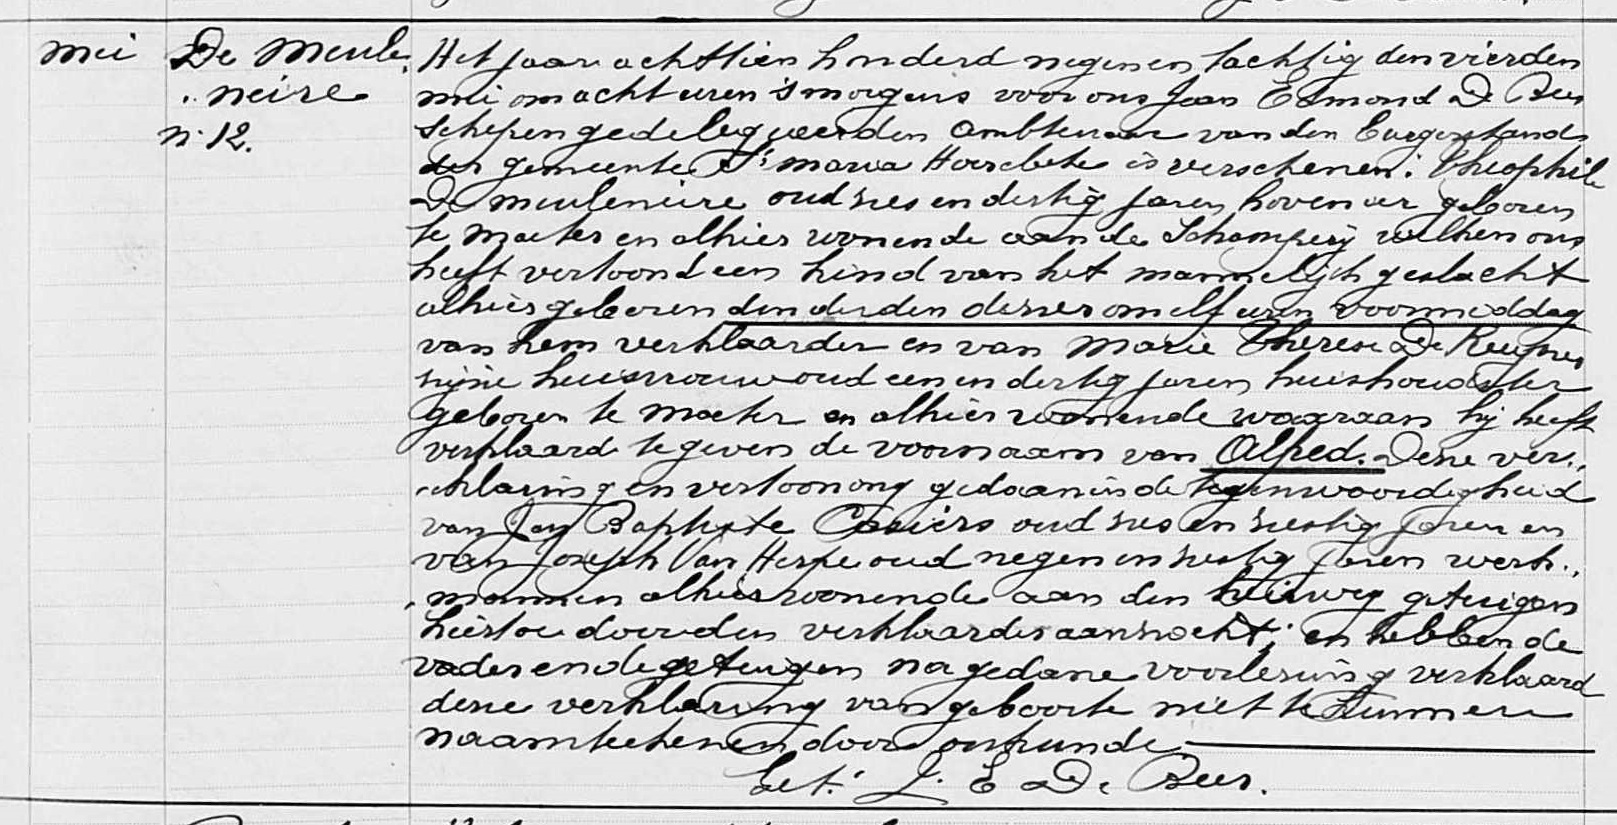 mei
De Meule„
„neire
n. 12.
Het jaar achttien honderd negen en tachtig den vierden
mei om acht uren 's morgens voor ons Jean Edmond De Beer
schepen gedelegueerden ambtenaar van den Burgerstand
der gemeente St maria Hoorebeke is verschenen: Theophile
De meuleneire oud zes en dertig jaren hovenier geboren
te Maeter en alhier wonende aan de welken ons
heeft vertoond een kind van het mannelijk geslacht
alhier geboren den derden dezer om elf uren voormiddag
van hem verklaarder en van Marie Therese De
zijne huisvrouw oud een en dertig jaren huishoudster
geboren te Maeter en alhier wonende waaraan hij heeft
verklaard te geven de voornaam van Alfred. Deze ver„
„klaring en vertooning gedaan in de tegenwoordigheid
van Jan Baptiste oud zes en zestig jaren en
van Joseph Van Herpe oud negen en zestig jaren werk„
„mannen alhier wonende aan den getuigen
hiertoe door den verklaarder aanzocht; en hebben de
vader en de getuigen na gedane voorlezing verklaard
deze verklaring van geboorte niet te kunnen
naamteekenen door onkunde
Get. J. E. De Beer.